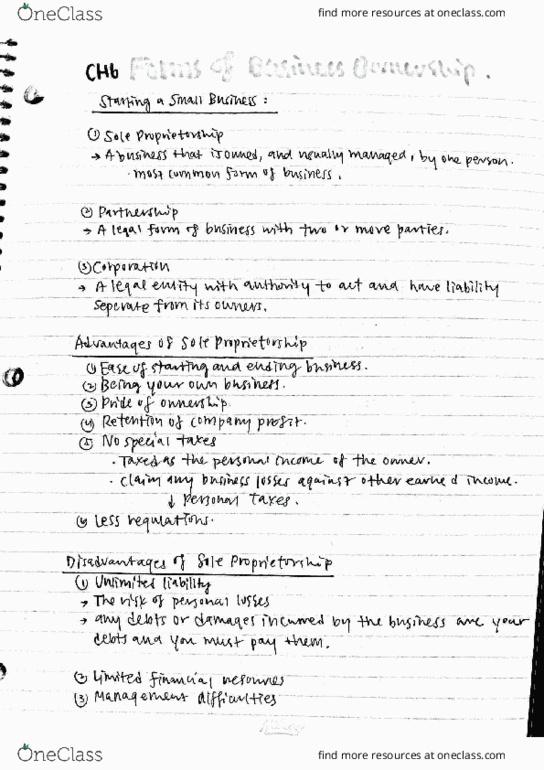 OneClass
find more resources at oneclass.com
CH6 Forms of Business Ownership.
Starting a Small Business:
① Sole Proprietorship
→ A business that is owned, and usually managed, by one person.
· most common form of business.
② Partnership
→ A legal form of business with two or more parties.
③ Corporation
→ A legal entity with authority to act and have liability
seperate from its owners.
Advantages of Sole Proprietorship
① Ease of starting and ending business.
② Being your own business.
③ Pride of ownership
④ Retention of company profit.
⑤ No special taxes
· Taxed as the personal income of the owner.
· claim any business losses against other earned income.
↓ personal taxes.
⑥ Less regulations.
Disadvantages of Sole Proprietorship
① Unlimited liability
→ The risk of personal losses
→ any debts or damages incurred by the business are your
debts and you must pay them.
② Limited financial resources
③ Management difficulties
OneClass
find more resources at oneclass.com